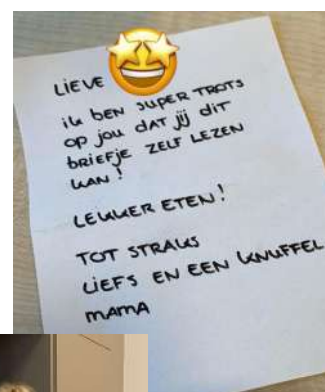 LIEVE
ik ben super trots
op jou dat jij dit
briefje zelf lezen
kan!
LEKKER ETEN!
TOT STRAKS
LIEFS EN EEN KNUFFEL
MAMA